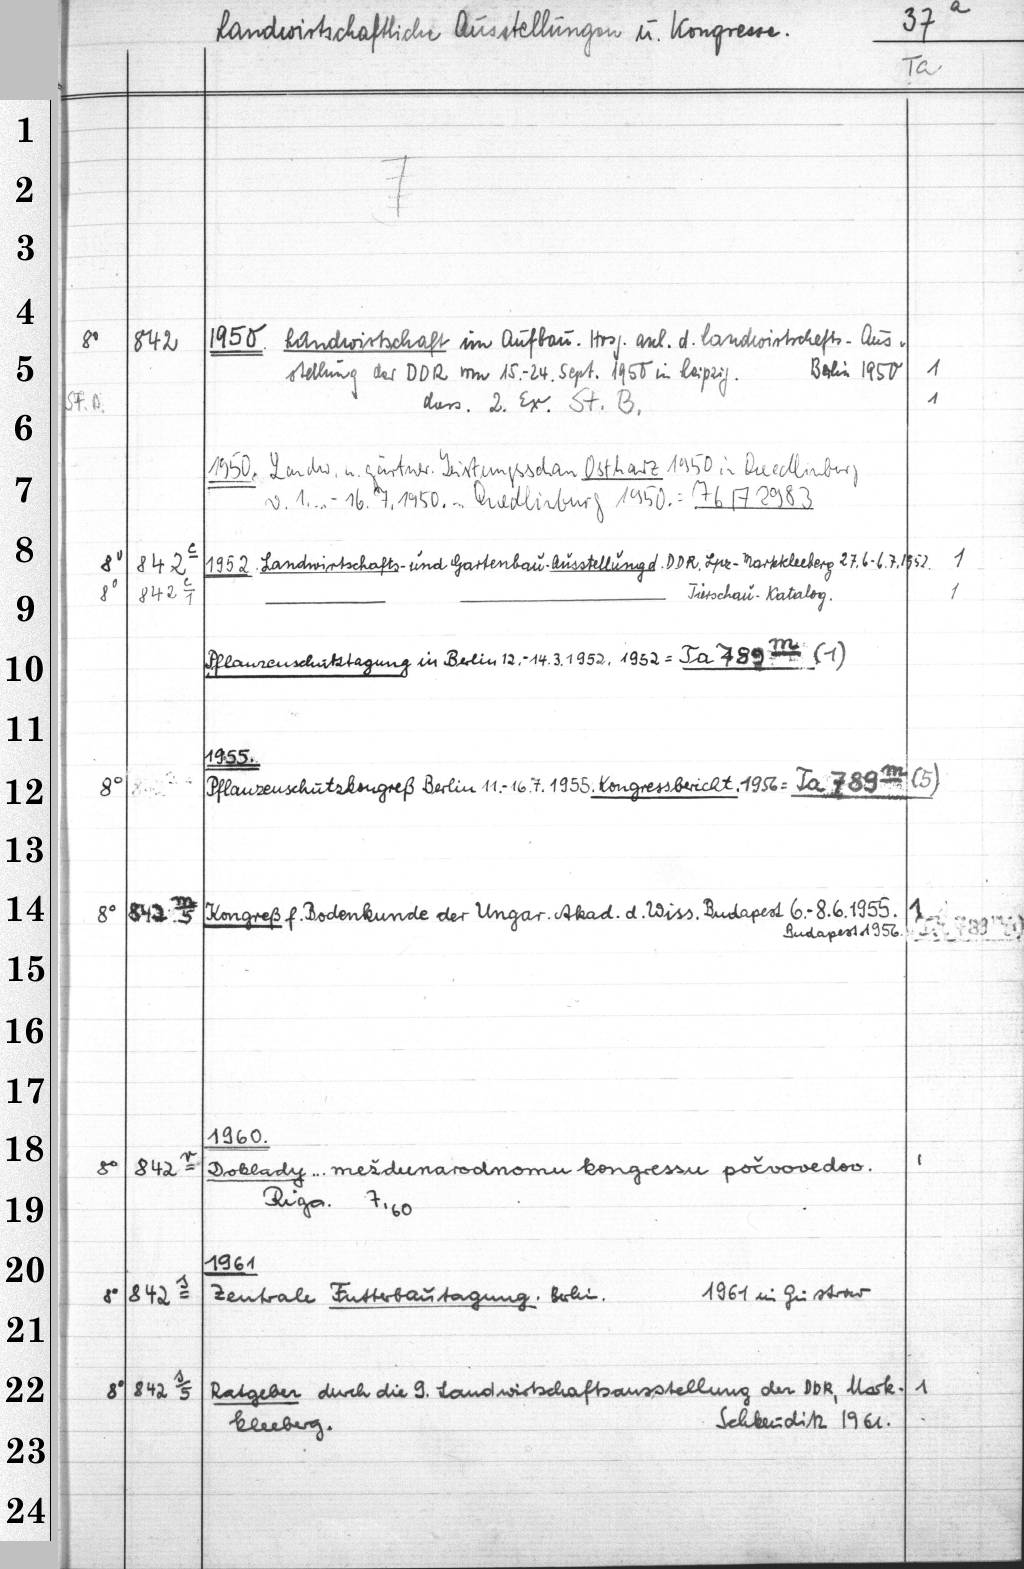 Landwirtschaftliche Ausstellungen u. Kongresse. 37 a
Ta
1
2
7
3
4
8° 842 1950. Landwirtschaft im Aufbau. Hrsg. anl. d. Landwirtschafts-Aus-
5 stellung der DDR vom 15.-24. Sept. 1950 in Leipzig. Berlin 1950 1
St. B. dass. 2. Ex. St. B. 1
6
1950. Landw. u. gärtner. Leistungsschau Ostharz 1950 in Quedlinburg
7 v. 1... - 16.7.1950. Quedlinburg 1950. = 76 F 2983
8 8° 842 c 1952. Landwirtschafts- und Gartenbau-Ausstellung d. DDR, Lpz-Markkleeberg 27.6-6.7.1952. 1
9 8° 842 c/1 Tierschau-Katalog. 1
10 Pflanzenschutztagung in Berlin 12.-14.3.1952. 1952 = Ta 789 m (1)
11
1955.
12 8° Pflanzenschutzkongreß Berlin 11.-16.7.1955. Kongressbericht. 1956 = Ta 789 m (5)
13
14 8° 842 m/5 Kongreß f. Bodenkunde der Ungar. Akad. d. Wiss. Budapest 6.-8.6.1955. 1
Budapest 1956.
15
16
17
1960.
18 8° 842 r Doklady... meždunarodnomu kongressu počvovedov. 1
19 Riga. 7.60
20 1961
8° 842 s Zentrale Futterbautagung. Berlin. 1961 in Güstrow
21
22 8° 842 s/5 Ratgeber durch die 9. Landwirtschaftsausstellung der DDR, Mark- 1
kleeberg. Schkeuditz 1961.
23
24